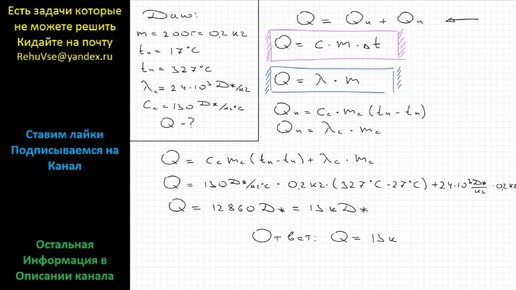 Есть задачи которые
не можете решить
Кидайте на почту
RehuVse@yandex.ru
Ставим лайки
Подписываемся на
Канал
Остальная
Информация в
Описании канала
Дано:
m = 200г = 0,2 кг
tн = 17°C
tп = 327°C
λc = 24·10³ Дж/кг
Cc = 130 Дж/кг°C
Q - ?
Q = Qн + Qп
Q = c · m · Δt
Q = λ · m
Qн = Cc · mc (tп - tн)
Qп = λc · mc
Q = Cc mc (tп - tн) + λc · mc
Q = 130 Дж/кг°C · 0,2 кг · (327°C - 27°C) + 24·10³ Дж/кг · 0,2 кг
Q = 12860 Дж = 13 кДж
Ответ: Q = 13 к